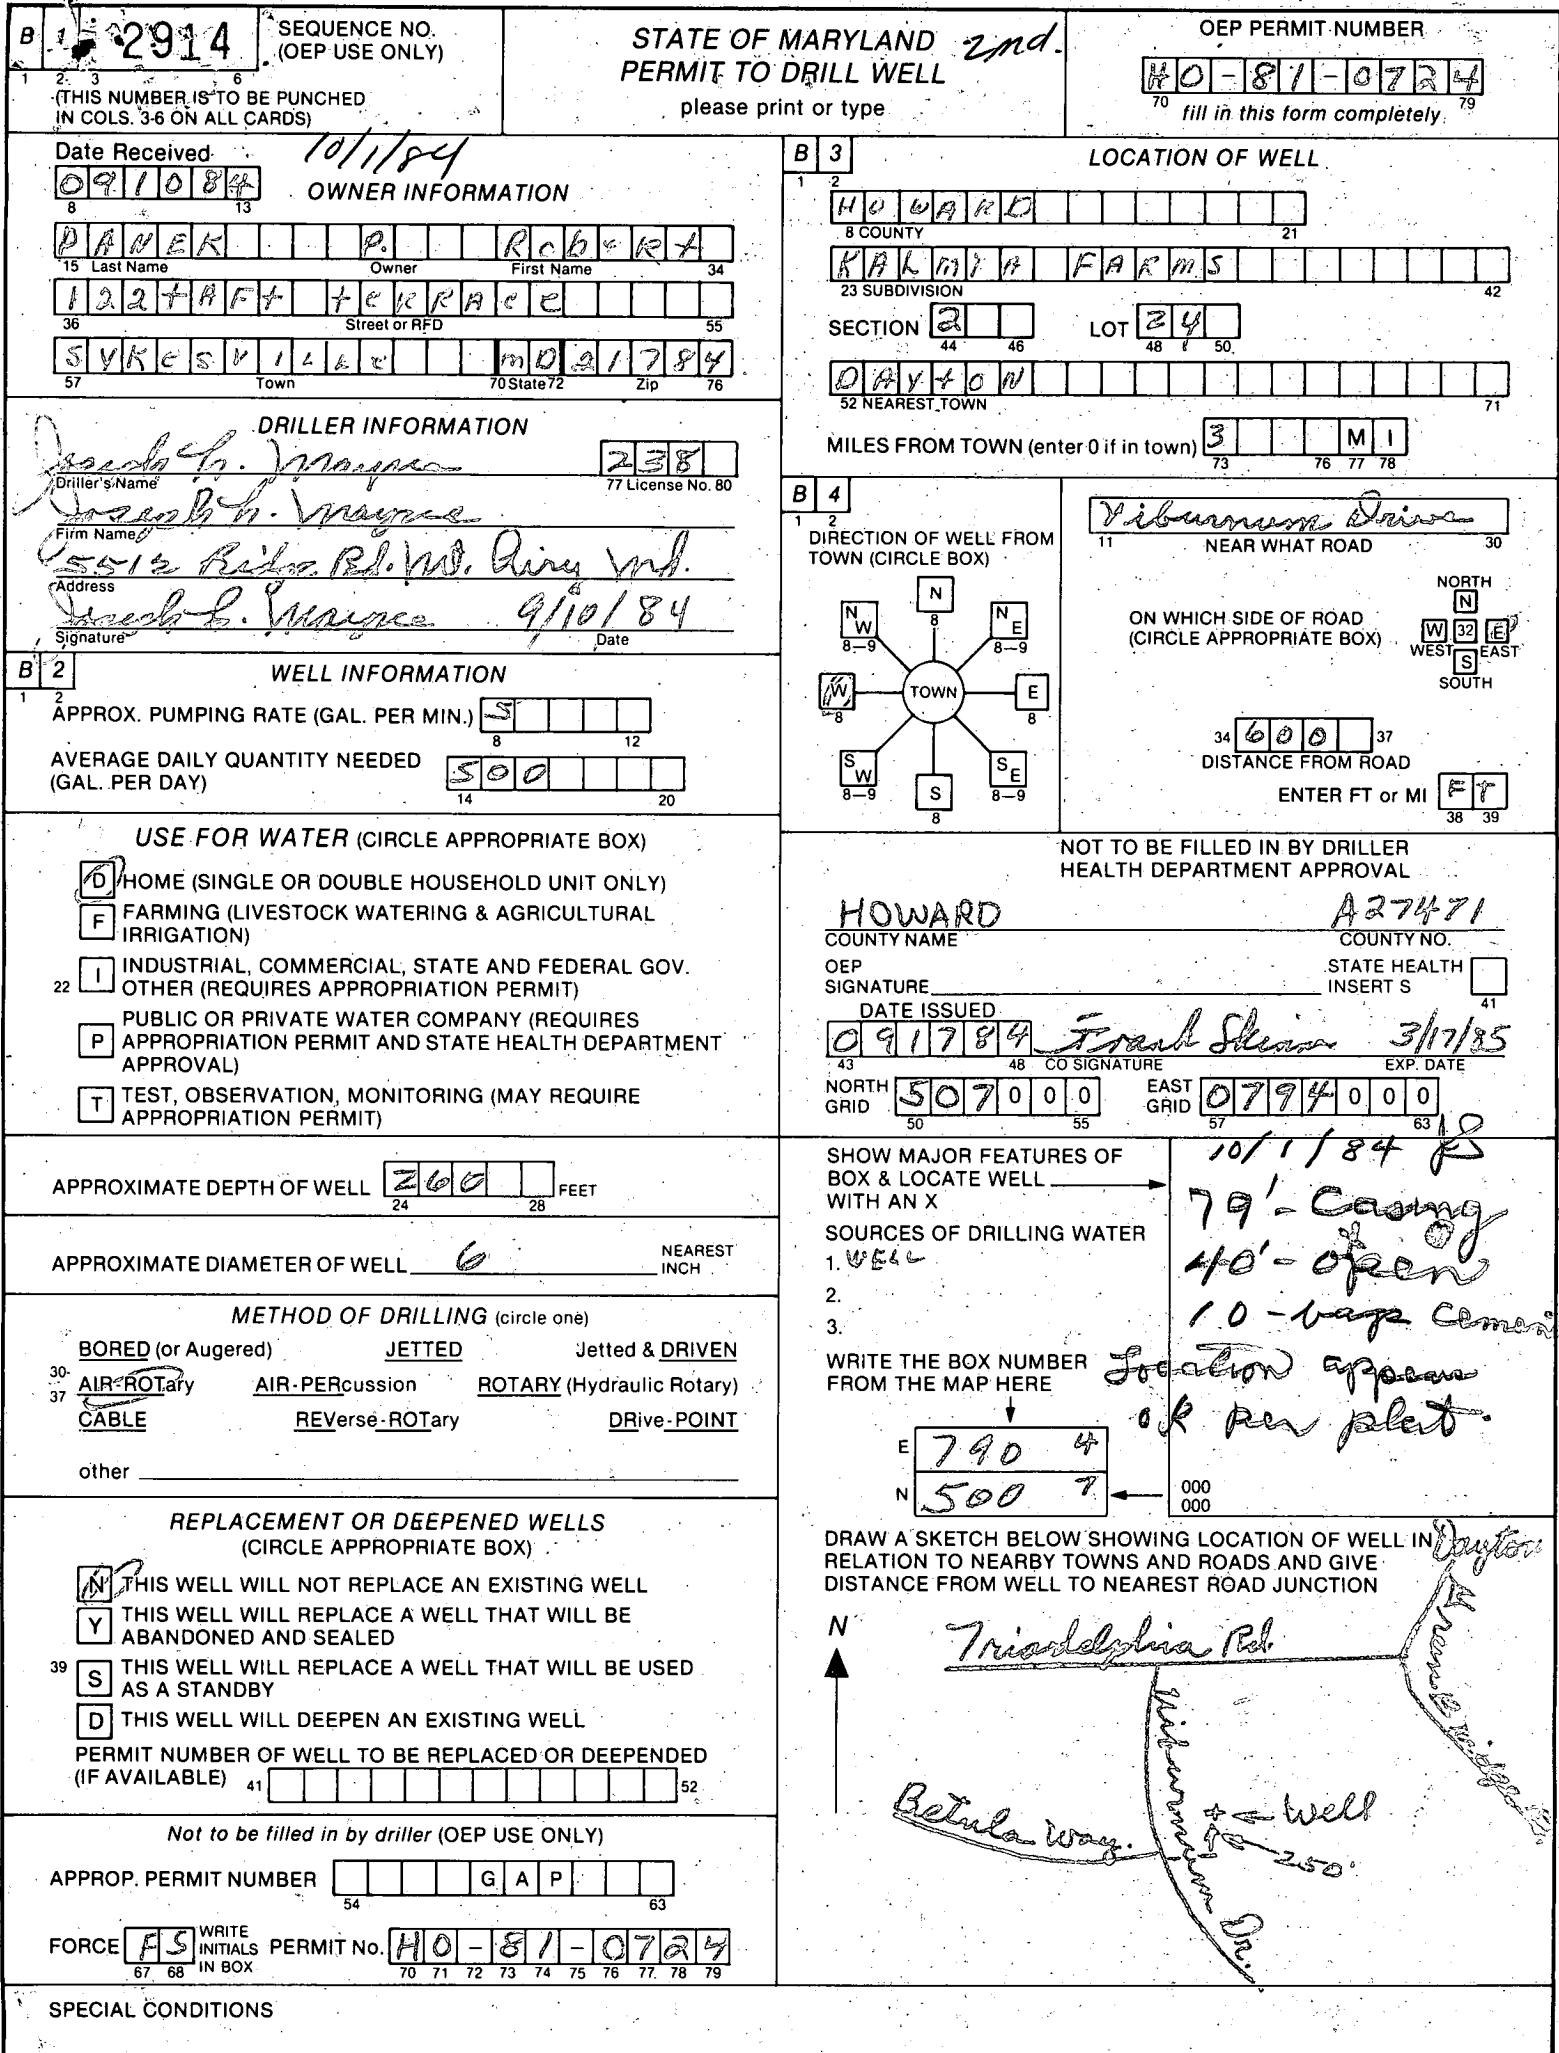 B 1 2914 SEQUENCE NO. (OEP USE ONLY)
1 2 3 6
(THIS NUMBER IS TO BE PUNCHED
IN COLS. 3-6 ON ALL CARDS)
STATE OF MARYLAND 2nd.
PERMIT TO DRILL WELL
please print or type
OEP PERMIT NUMBER
HO-81-0724
70 79
fill in this form completely
Date Received 10/1/84
091084
8 13
OWNER INFORMATION
PANEK P. Robert
15 Last Name Owner First Name 34
122 tAFt tERRAce
36 Street or RFD 55
SYKESVILLE MD 21784
57 Town 70 State 72 Zip 76
DRILLER INFORMATION
Joseph L. Mayne 238
Driller's Name 77 License No. 80
Joseph L. Mayne
Firm Name
5512 Ridge Rd. Mt. Airy Md.
Address
Joseph L. Mayne 9/10/84
Signature Date
B 2 WELL INFORMATION
1 2
APPROX. PUMPING RATE (GAL. PER MIN.) 5
8 12
AVERAGE DAILY QUANTITY NEEDED
(GAL. PER DAY) 500
14 20
USE FOR WATER (CIRCLE APPROPRIATE BOX)
D HOME (SINGLE OR DOUBLE HOUSEHOLD UNIT ONLY)
F FARMING (LIVESTOCK WATERING & AGRICULTURAL
IRRIGATION)
22 I INDUSTRIAL, COMMERCIAL, STATE AND FEDERAL GOV.
OTHER (REQUIRES APPROPRIATION PERMIT)
P PUBLIC OR PRIVATE WATER COMPANY (REQUIRES
APPROPRIATION PERMIT AND STATE HEALTH DEPARTMENT
APPROVAL)
T TEST, OBSERVATION, MONITORING (MAY REQUIRE
APPROPRIATION PERMIT)
APPROXIMATE DEPTH OF WELL 260 FEET
24 28
APPROXIMATE DIAMETER OF WELL 6 NEAREST
INCH
METHOD OF DRILLING (circle one)
BORED (or Augered) JETTED Jetted & DRIVEN
30-37 AIR-ROTary AIR-PERcussion ROTARY (Hydraulic Rotary)
CABLE REVerse-ROTary DRive-POINT
other
REPLACEMENT OR DEEPENED WELLS
(CIRCLE APPROPRIATE BOX)
N THIS WELL WILL NOT REPLACE AN EXISTING WELL
Y THIS WELL WILL REPLACE A WELL THAT WILL BE
ABANDONED AND SEALED
39 S THIS WELL WILL REPLACE A WELL THAT WILL BE USED
AS A STANDBY
D THIS WELL WILL DEEPEN AN EXISTING WELL
PERMIT NUMBER OF WELL TO BE REPLACED OR DEEPENDED
(IF AVAILABLE) 41 52
Not to be filled in by driller (OEP USE ONLY)
APPROP. PERMIT NUMBER GAP
54 63
FORCE FS WRITE INITIALS IN BOX PERMIT No. HO-81-0724
67 68 70 71 72 73 74 75 76 77 78 79
SPECIAL CONDITIONS
B 3 LOCATION OF WELL
1 2
HOWARD
8 COUNTY 21
KALMIA FARMS
23 SUBDIVISION 42
SECTION 2 LOT 24
44 46 48 50
DAYtON
52 NEAREST TOWN 71
MILES FROM TOWN (enter 0 if in town) 3 MI
73 76 77 78
B 4
1 2
DIRECTION OF WELL FROM
TOWN (CIRCLE BOX)
N
8
NW NE
8-9 8-9
W TOWN E
8 8
SW SE
8-9 8-9
S
8
Viburnum Drive
11 NEAR WHAT ROAD 30
ON WHICH SIDE OF ROAD
(CIRCLE APPROPRIATE BOX)
NORTH
N
W 32 E
WEST EAST
S
SOUTH
34 600 37
DISTANCE FROM ROAD
ENTER FT or MI FT
38 39
NOT TO BE FILLED IN BY DRILLER
HEALTH DEPARTMENT APPROVAL
HOWARD A27471
COUNTY NAME COUNTY NO.
OEP
SIGNATURE STATE HEALTH
INSERT S
41
DATE ISSUED
091784 Frank Skinn 3/17/85
43 48 CO SIGNATURE EXP. DATE
NORTH GRID 507000 EAST GRID 0794000
50 55 57 63
SHOW MAJOR FEATURES OF
BOX & LOCATE WELL
WITH AN X
SOURCES OF DRILLING WATER
1. WELL
2.
3.
WRITE THE BOX NUMBER
FROM THE MAP HERE
E 790 4
N 500 7
000
000
10/1/84 FS
79'-Casing
40'-open
10-bags cement
Location appears
ok per plat.
DRAW A SKETCH BELOW SHOWING LOCATION OF WELL IN
RELATION TO NEARBY TOWNS AND ROADS AND GIVE
DISTANCE FROM WELL TO NEAREST ROAD JUNCTION
Dayton
N
Triadelphia Rd.
Viburnum Dr.
Betula Way.
Well
250'